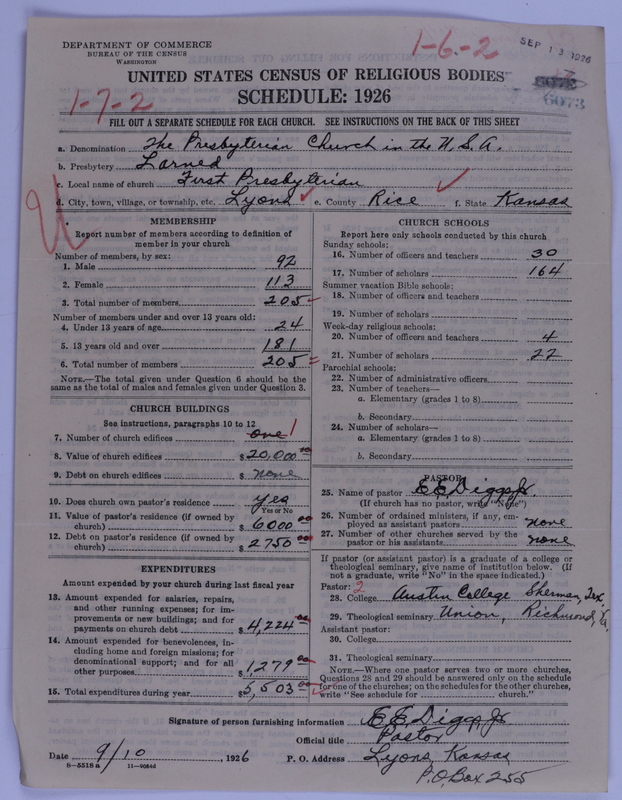 DEPARTMENT OF COMMERCE
BUREAU OF THE CENSUS
WASHINGTON
1-6-2
SEP 13 1926
6073
UNITED STATES CENSUS OF RELIGIOUS BODIES
SCHEDULE: 1926
1-7-2
FILL OUT A SEPARATE SCHEDULE FOR EACH CHURCH. SEE INSTRUCTIONS ON THE BACK OF THIS SHEET
a. Denomination The Presbyterian Church in the U.S.A.
b. Presbytery Larned
c. Local name of church First Presbyterian
d. City, town, village, or township, etc. Lyons e. County Rice f. State Kansas
MEMBERSHIP
Report number of members according to definition of
member in your church
Number of members, by sex:
1. Male 92
2. Female 113
3. Total number of members 205
Number of members under and over 13 years old:
4. Under 13 years of age 24
5. 13 years old and over 181
6. Total number of members 205
NOTE.—The total given under Question 6 should be the
same as the total of males and females given under Question 3.
CHURCH BUILDINGS
See instructions, paragraphs 10 to 12
7. Number of church edifices one 1
8. Value of church edifices $20,000 00
9. Debt on church edifices $ none
10. Does church own pastor's residence yes
Yes or No
11. Value of pastor's residence (if owned by
church) $6000 00
12. Debt on pastor's residence (if owned by
church) $2750 00
EXPENDITURES
Amount expended by your church during last fiscal year
13. Amount expended for salaries, repairs,
and other running expenses; for im-
provements or new buildings; and for
payments on church debt $4,224 00
14. Amount expended for benevolences, in-
cluding home and foreign missions; for
denominational support; and for all
other purposes $1279 00
15. Total expenditures during year $5,503 00
CHURCH SCHOOLS
Report here only schools conducted by this church
Sunday schools:
16. Number of officers and teachers 30
17. Number of scholars 164
Summer vacation Bible schools:
18. Number of officers and teachers
19. Number of scholars
Week-day religious schools:
20. Number of officers and teachers 4
21. Number of scholars 22
Parochial schools:
22. Number of administrative officers
23. Number of teachers—
a. Elementary (grades 1 to 8)
b. Secondary
24. Number of scholars—
a. Elementary (grades 1 to 8)
b. Secondary
PASTOR
25. Name of pastor E E Diggs Jr.
(If church has no pastor, write "No")
26. Number of ordained ministers, if any, em-
ployed as assistant pastors none
27. Number of other churches served by the
pastor or his assistants none
If pastor (or assistant pastor) is a graduate of a college or
theological seminary, give name of institution below. (If
not a graduate, write "No" in the space indicated.)
Pastor: 2
28. College Austin College Sherman, Tex
29. Theological seminary Union, Richmond, Va.
Assistant pastor:
30. College
31. Theological seminary
NOTE.—Where one pastor serves two or more churches,
Questions 28 and 29 should be answered only on the schedule
for one of the churches; on the schedules for the other churches,
write "See schedule for church."
Signature of person furnishing information E E Diggs Jr
Official title Pastor
Date 9/10, 1926 P. O. Address Lyons, Kansas
8-5518a 11-9084d P.O. Box 255